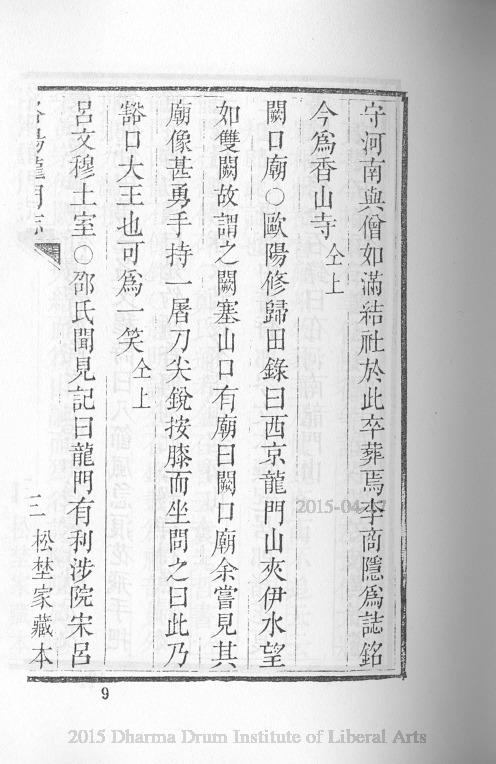 守河南與僧如滿結社於此卒葬焉李商隱爲誌銘
今爲香山寺仝上
闕口廟○歐陽修歸田錄曰西京龍門山夾伊水望
如雙闕故謂之闕塞山口有廟曰闕口廟余嘗見其
廟像甚勇手持一屠刀尖銳按膝而坐問之曰此乃
豁口大王也可爲一笑仝上
呂文穆土室○邵氏聞見記曰龍門有利涉院宋呂
洛陽龍門志
三 松埜家藏本
9
2015 Dharma Drum Institute of Liberal Arts